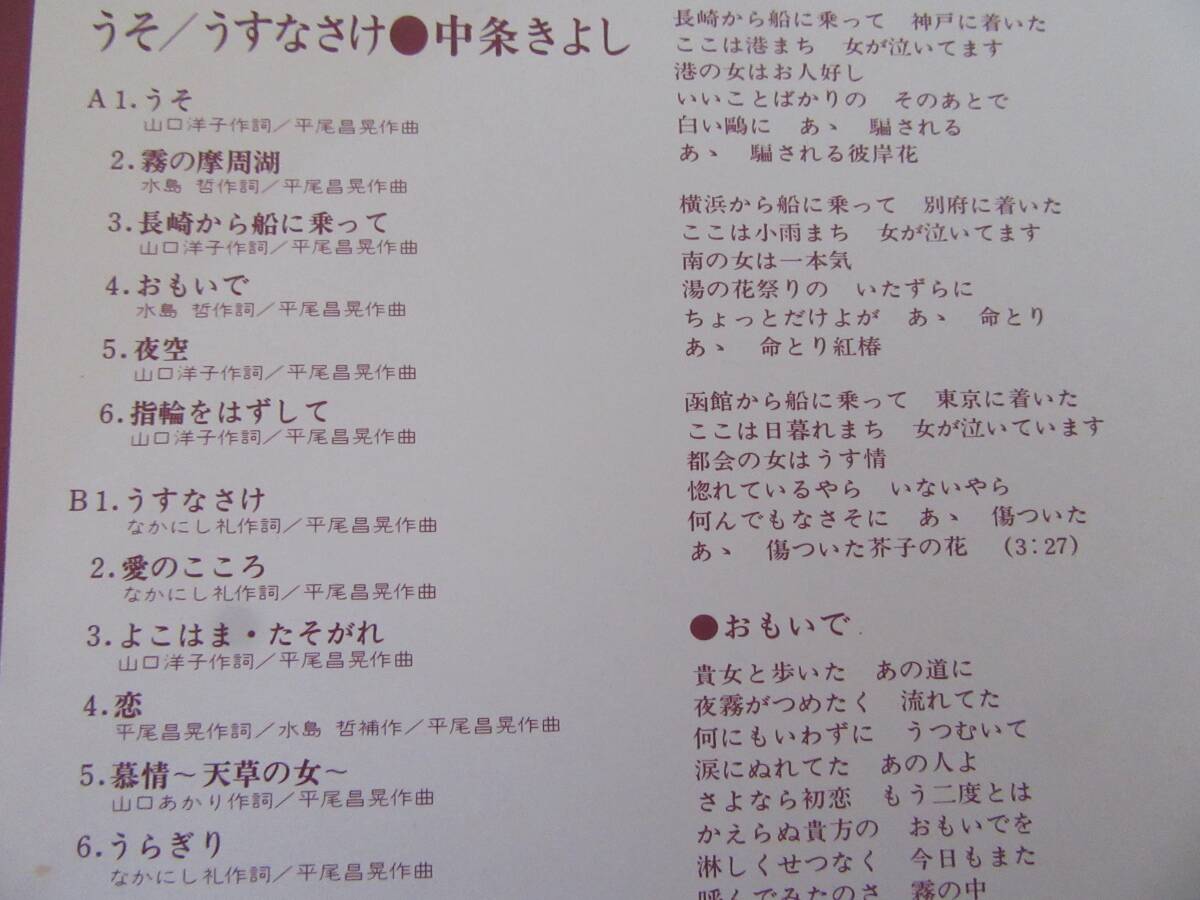 うそ／うすなさけ●中条きよし
A1.うそ
山口洋子作詞／平尾昌晃作曲
2.霧の摩周湖
水島 哲作詞／平尾昌晃作曲
3.長崎から船に乗って
山口洋子作詞／平尾昌晃作曲
4.おもいで
水島 哲作詞／平尾昌晃作曲
5.夜空
山口洋子作詞／平尾昌晃作曲
6.指輪をはずして
山口洋子作詞／平尾昌晃作曲
B1.うすなさけ
なかにし礼作詞／平尾昌晃作曲
2.愛のこころ
なかにし礼作詞／平尾昌晃作曲
3.よこはま・たそがれ
山口洋子作詞／平尾昌晃作曲
4.恋
平尾昌晃作詞／水島 哲補作／平尾昌晃作曲
5.慕情〜天草の女〜
山口あかり作詞／平尾昌晃作曲
6.うらぎり
なかにし礼作詞／平尾昌晃作曲
長崎から船に乗って　神戸に着いた
ここは港まち　女が泣いてます
港の女はお人好し
いいことばかりの　そのあとで
白い鷗に　あゝ　騙される
あゝ　騙される彼岸花
横浜から船に乗って　別府に着いた
ここは小雨まち　女が泣いてます
南の女は一本気
湯の花祭りの　いたずらに
ちょっとだけよが　あゝ　命とり
あゝ　命とり紅椿
函館から船に乗って　東京に着いた
ここは日暮れまち　女が泣いています
都会の女はうす情
惚れているやら　いないやら
何んでもなさそに　あゝ　傷ついた
あゝ　傷ついた芥子の花　(3:27)
●おもいで
貴女と歩いた　あの道に
夜霧がつめたく　流れてた
何にもいわずに　うつむいて
涙にぬれてた　あの人よ
さよなら初恋　もう二度とは
かえらぬ貴方の　おもいでを
淋しくせつなく　今日もまた
呼んでみたのさ　霧の中